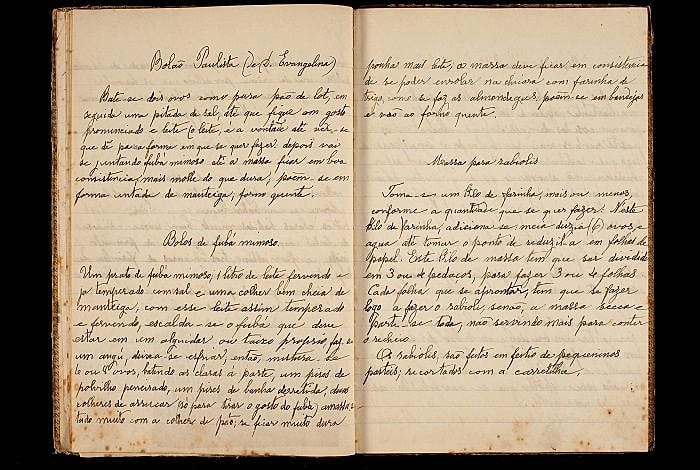 Bolão Paulista (de D. Evangelina)
Bate-se dois ovos como para pão de lot, em
seguida uma pitada de sal, até que fique com gosto
pronunciado e leite (o leite, e a vontade até ver, se
que dê para a forma em que se quer fazer) depois vai
se juntando fubá mimoso até a massa ficar em boa
consistencia, mais molle do que dura; poem-se em
forma untada de manteiga; forno quente.
Bolos de fubá mimoso.
Um prato de fubá mimoso, 1 litro de leite fervendo e
já temperado com sal e uma colher bem cheia de
manteiga, com esse leite assim temperado
e fervendo, escalda-se o fubá que deve
estar em um alguidar ou taixo proprio, faz-se
um angú, deixa-se esfriar, então, mistura-se
ovos, batendo as claras á parte, um pires de
polvilho peneirado, um pires de banha derretida, duas
colheres de assucar (só para tirar o gosto do fubá) amassa-
tudo muito com a colher de pão; se ficar muito dura
ponha mais leite, a massa deve ficar em consistencia
de se poder enrolar na chicara com farinha de
trigo, como se faz as almondegas; poem-se em bandejas
e vão ao forno quente.
Massa para rabiolis
Toma-se um kilo de farinha, mais ou menos,
conforme a quantidade que se quer fazer. Neste
kilo de farinha, addiciona-se meia duzia (6) ovos e
agua até tomar o ponto de reduzil-a em folhas de
papel. Este kilo de massa tem que ser dividido
em 3 ou 4 pedaços, para fazer 3 ou 4 folhas.
Cada folha que se aprontar, tem que se fazer
logo a fazer o rabioli, senão, a massa secca e
parte-se toda, não servindo mais para conter
o recheio.
Os rabiolis, são feitos em feitio de pequeninos
pasteis; recortados com a carretilha.